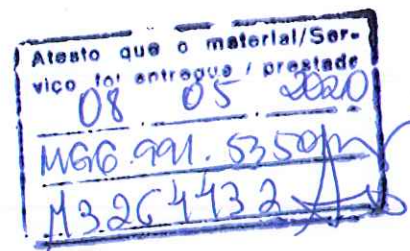 Atesto que o material/Ser-
viço foi entregue / prestado
08 05 2020
MG6.991.535
M3264432